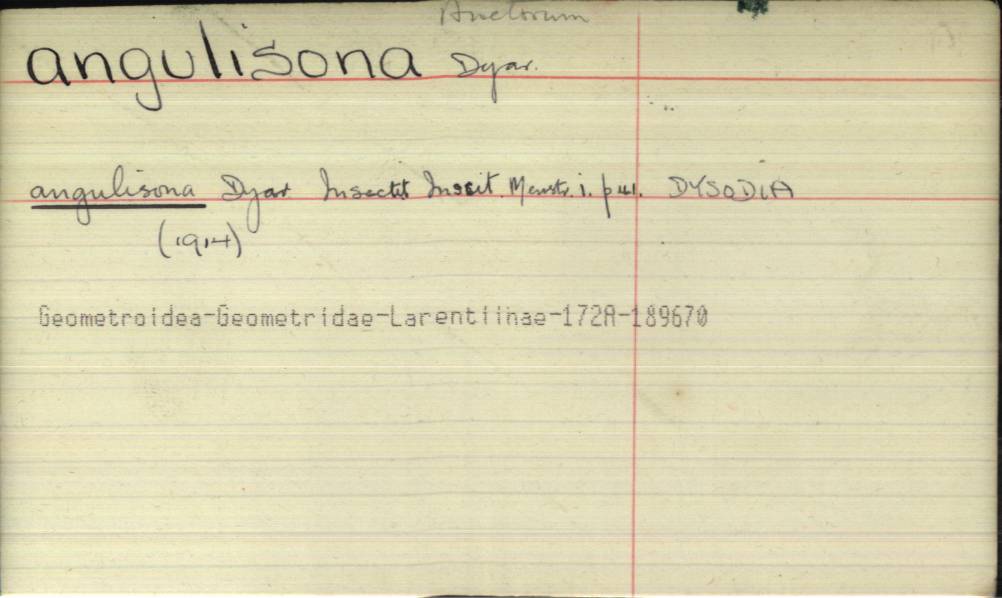 Auctorum
angulisona Dyar.
angulisona Dyar Insectit Inscit. Menstr. i. p 41. DYSODIA
(1914)
Geometroidea-Geometridae-Larentiinae-172A-189670